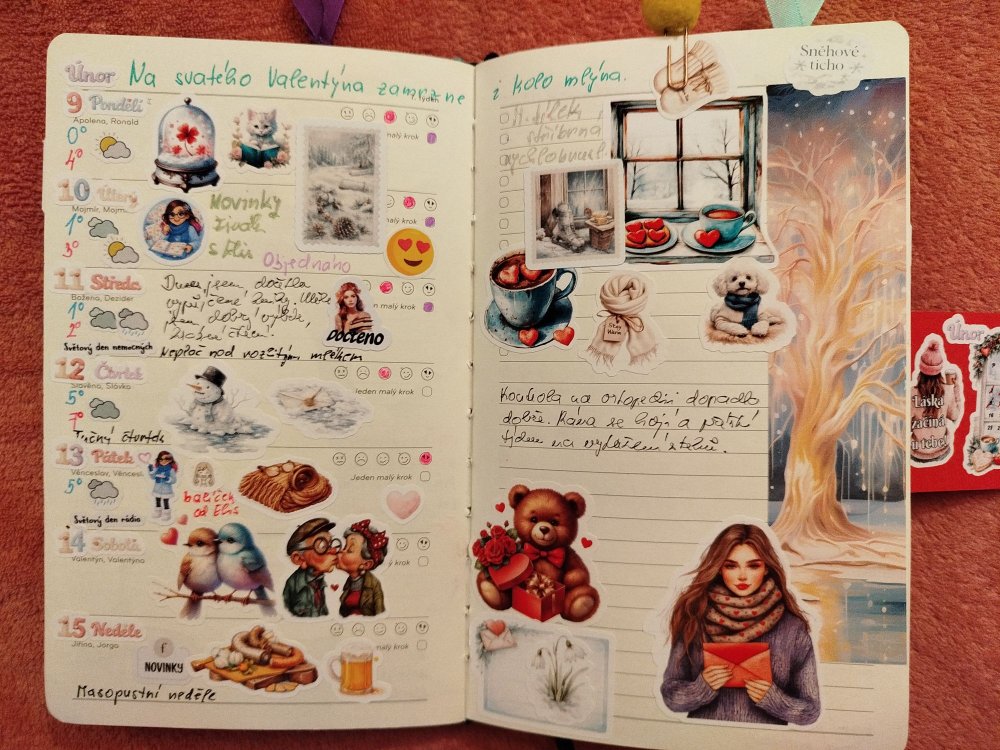 Únor Na svatého Valentýna zamrzne i kolo mlýna.
Sněhové ticho
týden
9 Pondělí
Apolena, Ronald
malý krok
0°
4°
10 Úterý
Mojmír, Mojm
malý krok
1°
3°
Novinky
život
s Elis
Objednáno
11 Středa
Božena, Dezider
malý krok
1°
2°
jsem dočetla
jsem dobrý výběr,
Dočteno
Světový den nemocných
Neplač nad rozlitým mlékem
12 Čtvrtek
Slavěna, Slávka
Jeden malý krok
5°
7°
Tučný čtvrtek
13 Pátek
Věnceslav, Věncesl
Jeden malý krok
5°
balíček
od Elis
Světový den rádia
14 Sobota
Valentýn, Valentýna
malý krok
15 Neděle
Jiřina, Jorga
malý krok
f
NOVINKY
Masopustní neděle
stříbrna
Stay Warm
Kontrola na ortopedii dopadla
dobře. Rána se hojí a příští
týden na vytažení stehů.
Únor
Láska
začíná
u tebe!